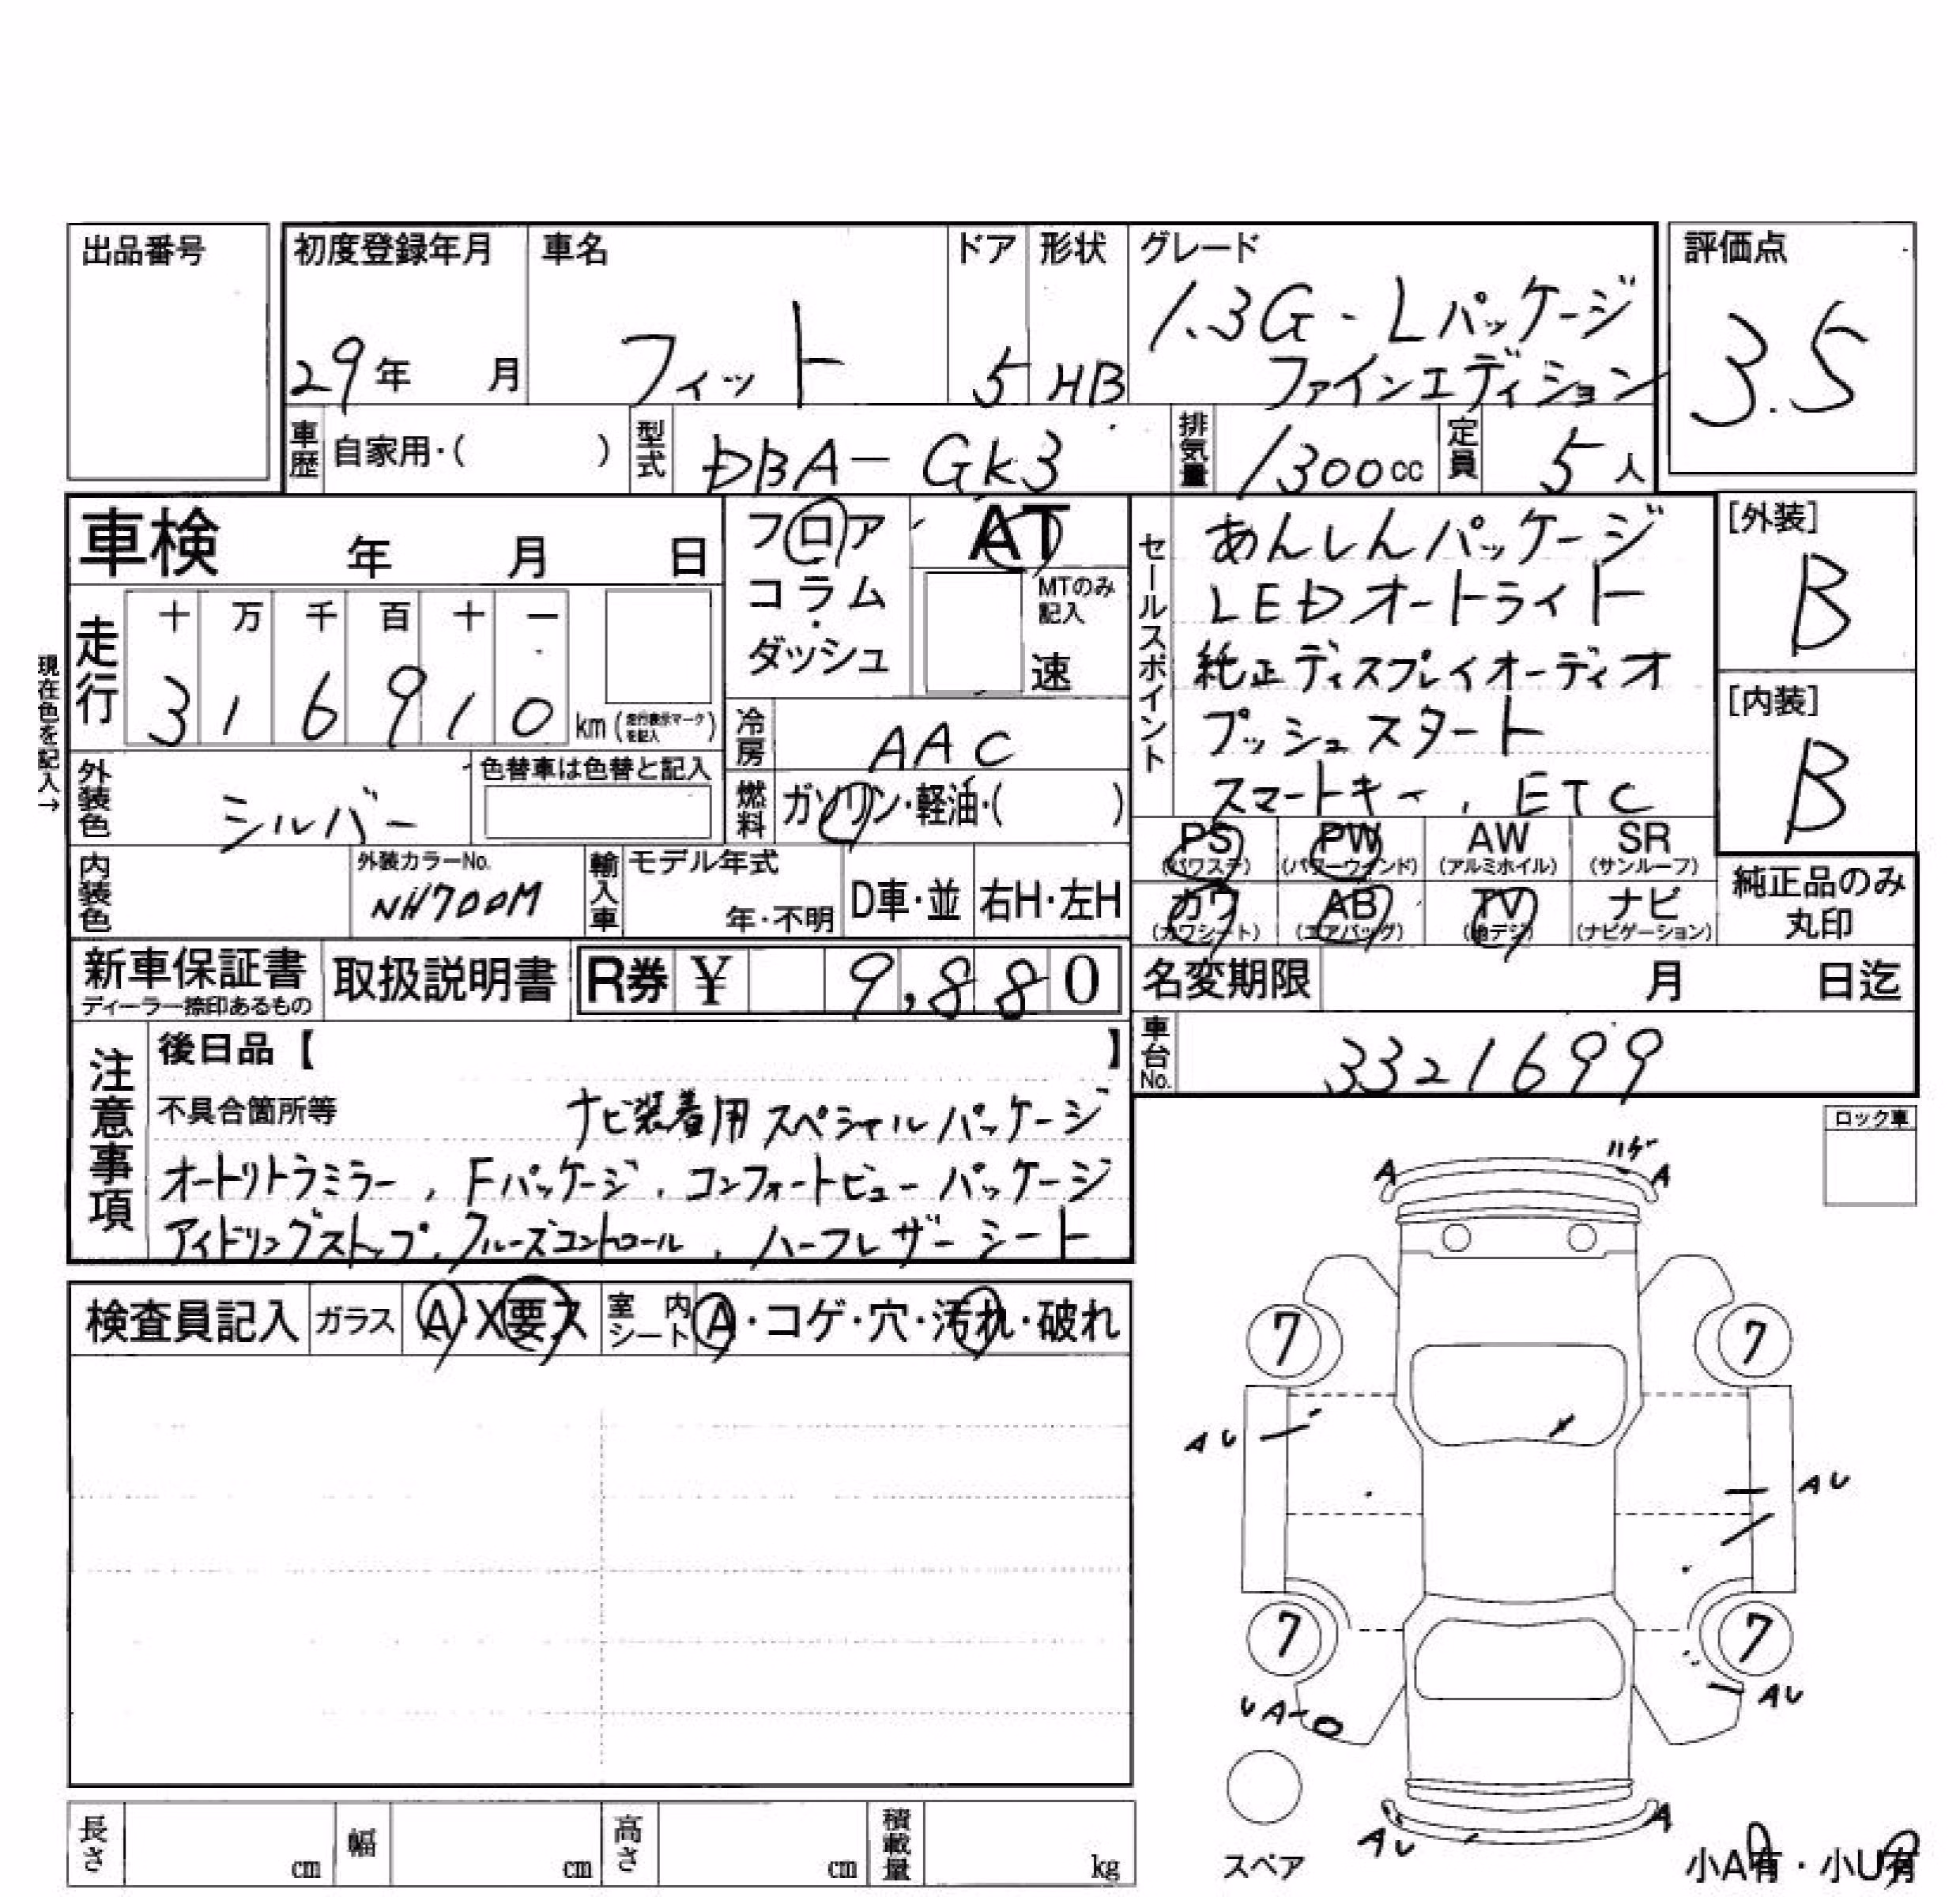 出品番号
初度登録年月 車名 ドア 形状 グレード 評価点
1.3G-Lパッケージ
29年 月 フィット 5 HB ファインエディション 3.5
車歴 自家用・( ) 型式 DBA-GK3 排気量 1300cc 定員 5人
車検 年 月 日
フロア AT
コラム・
ダッシュ
MTのみ記入
速
セールスポイント
あんしんパッケージ
LEDオートライト
純正ディスプレイオーディオ
プッシュスタート
スマートキー, ETC
[外装]
B
[内装]
B
現在色を記入→
走行 十 万 千 百 十 一
3 1 6 9 1 0 km (走行表示マークを記入)
冷房 AAC
外装色 シルバー 色替車は色替と記入
燃料 ガソリン・軽油・( )
PS (パワステ) PW (パワーウインド) AW (アルミホイル) SR (サンルーフ)
カワ (カワシート) AB (エアバッグ) TV (地デジ) ナビ (ナビゲーション)
純正品のみ
丸印
内装色 外装カラーNo. NH700M 輸入車 モデル年式 年・不明 D車・並 右H・左H
新車保証書 ディーラー捺印あるもの 取扱説明書 R券 ¥ 9,880
名変期限 月 日迄
車台No. 3321699
注意事項
後日品【 】
不具合箇所等 ナビ装着用スペシャルパッケージ
オートリトラミラー, Fパッケージ, コンフォートビューパッケージ
アイドリングストップ, クルーズコントロール, ハーフレザーシート
ロック車
検査員記入 ガラス A・X要ス 室内シート A・コゲ・穴・汚れ・破れ
ハゲ
A A
7 7
AU
AU
7 7
UA-O AU
AU A
スペア
小A有・小U有
長さ cm 幅 cm 高さ cm 積載量 kg